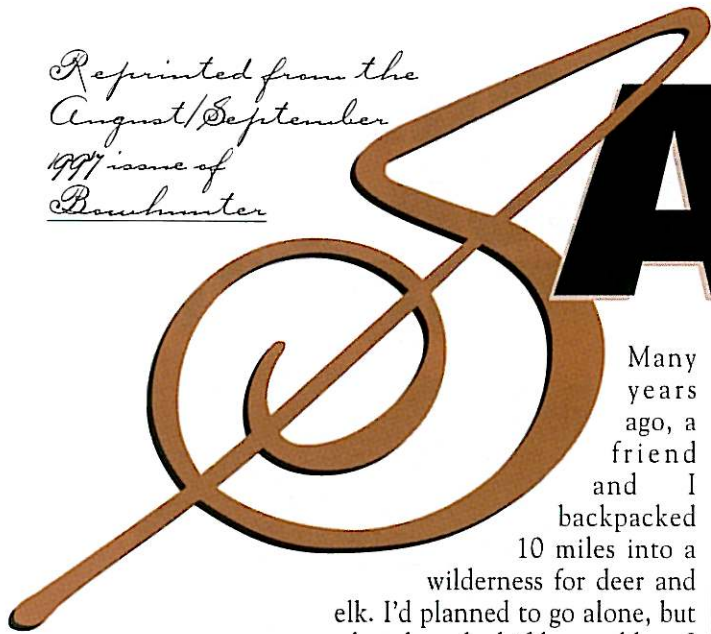 Reprinted from the
August/September
1997 issue of
Bowhunter
SA
Many
years
ago, a
friend
and I
backpacked
10 miles into a
wilderness for deer and
elk. I'd planned to go alone, but